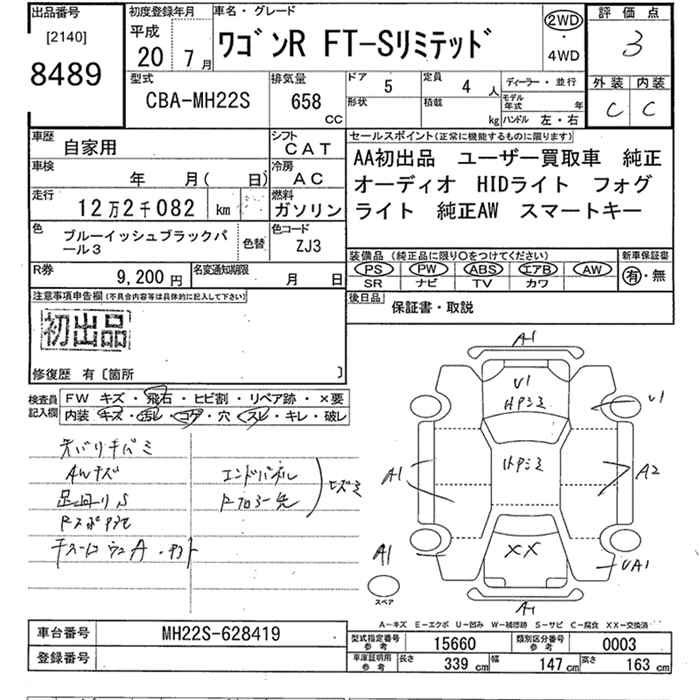 出品番号
[2140]
8489
初度登録年月
平成
20 7月
車名・グレード
ワゴンR FT-Sリミテッド
2WD
・
4WD
評価点
3
外装 内装
C C
型式
CBA-MH22S
排気量
658
CC
ドア 5
形状
定員 4人
積載 kg
ディーラー・並行
モデル年式 年
ハンドル 左・右
車歴
自家用
シフト
CAT
車検
年 月( 日)
冷房
AC
走行
12万2千082 km
燃料
ガソリン
色
ブルーイッシュブラックパール3
色替
色コード
ZJ3
R券
9,200円
名変通知期限
月 日
セールスポイント(正常に機能するものに限ります)
AA初出品 ユーザー買取車 純正
オーディオ HIDライト フォグ
ライト 純正AW スマートキー
装備品 (純正品に限り○をつけてください)
PS PW ABS エアB AW
SR ナビ TV カワ
新車保証書
有・無
後日品
保証書・取説
注意事項申告欄(不具合内容等は具体的に記入して下さい)
初出品
修復歴 有〔箇所 〕
検査員
記入欄
FW キズ・飛石・ヒビ割・リペア跡・×要
内装・キズ・汚レ・コゲ・穴・スレ・キレ・破レ
AWキズ
足回りS
エンドパネル
A1
U1
A1
A2
XX
A1
UA1
A1
スペア
A-キズ E-エクボ U-凹み W-補修跡 S-サビ C-腐食 XX-交換済
車台番号
MH22S-628419
登録番号
型式指定番号
参考
15660
類別区分番号
参考
0003
車庫証明用
参考
長さ 339cm
幅 147cm
高さ 163cm